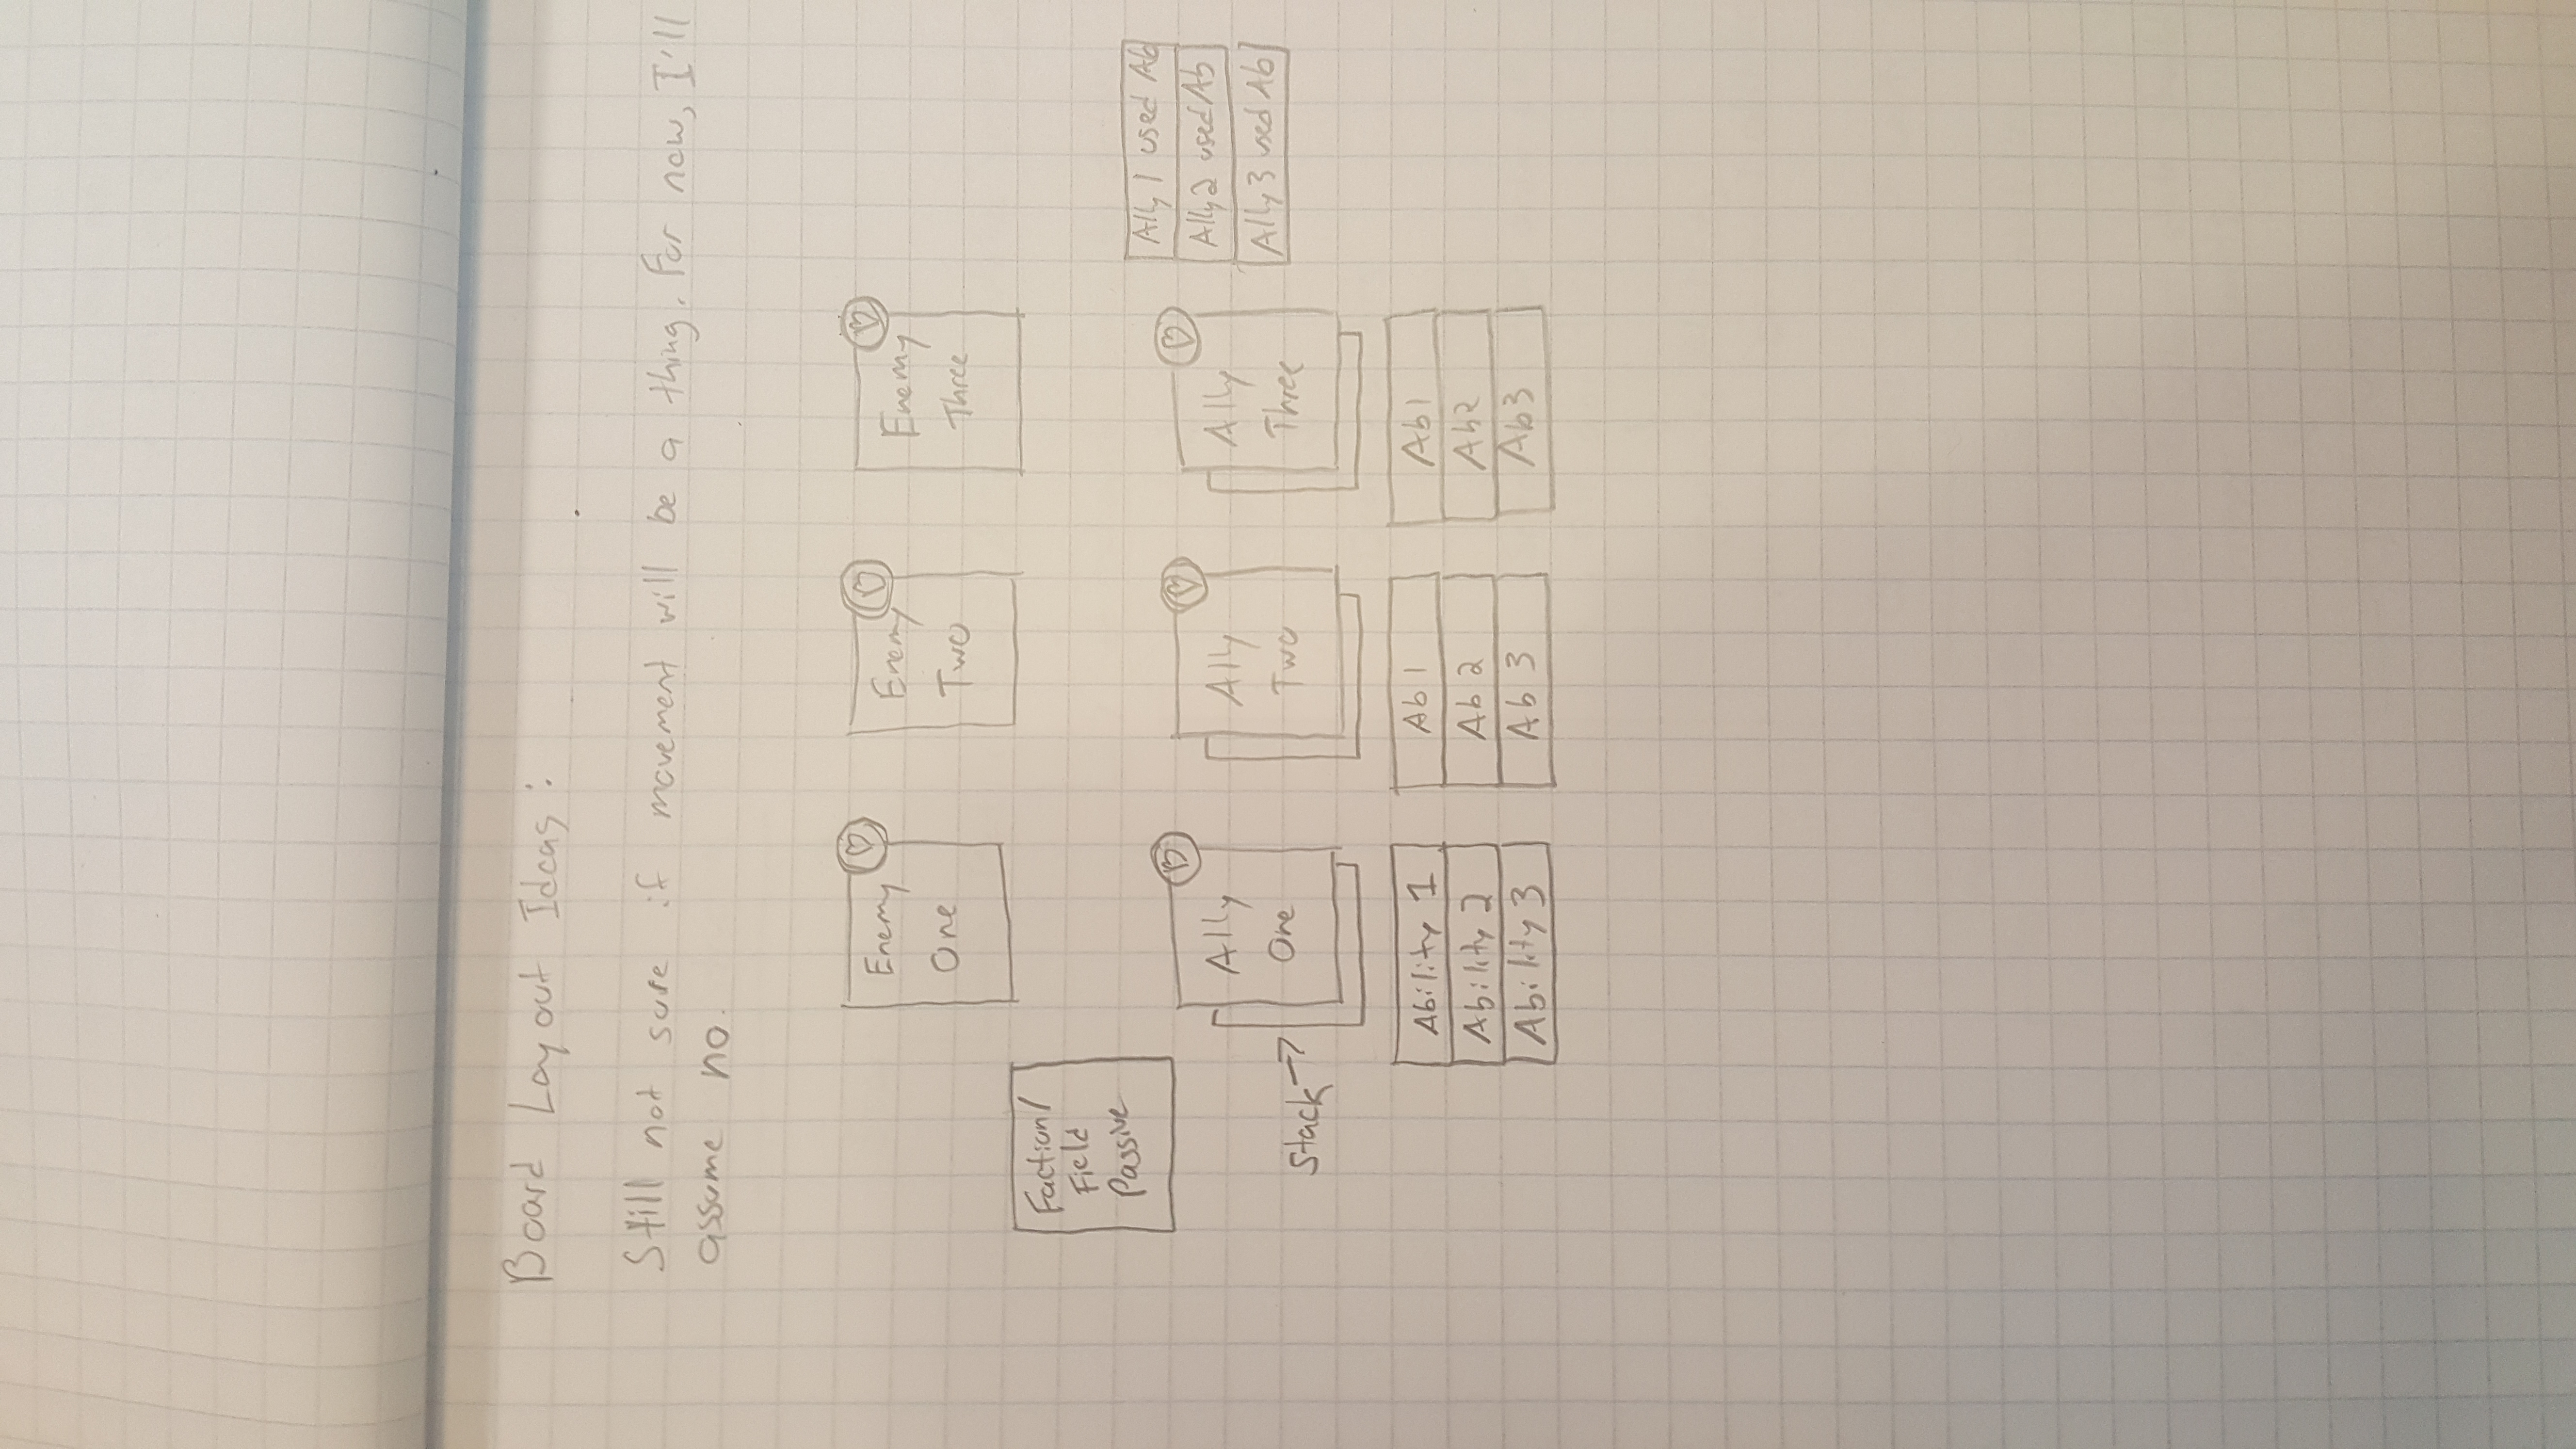 Board Layout Ideas:
Still not sure if movement will be a thing. For now, I'll
assume no.
Enemy
One
Enemy
Two
Enemy
Three
Faction/
Field
Passive
Stack
Ally
One
Ally
Two
Ally
Three
Ally 1 used Ab
Ally 2 used Ab
Ally 3 used Ab
Ability 1
Ability 2
Ability 3
Ab 1
Ab 2
Ab 3
Ab1
Ab2
Ab3